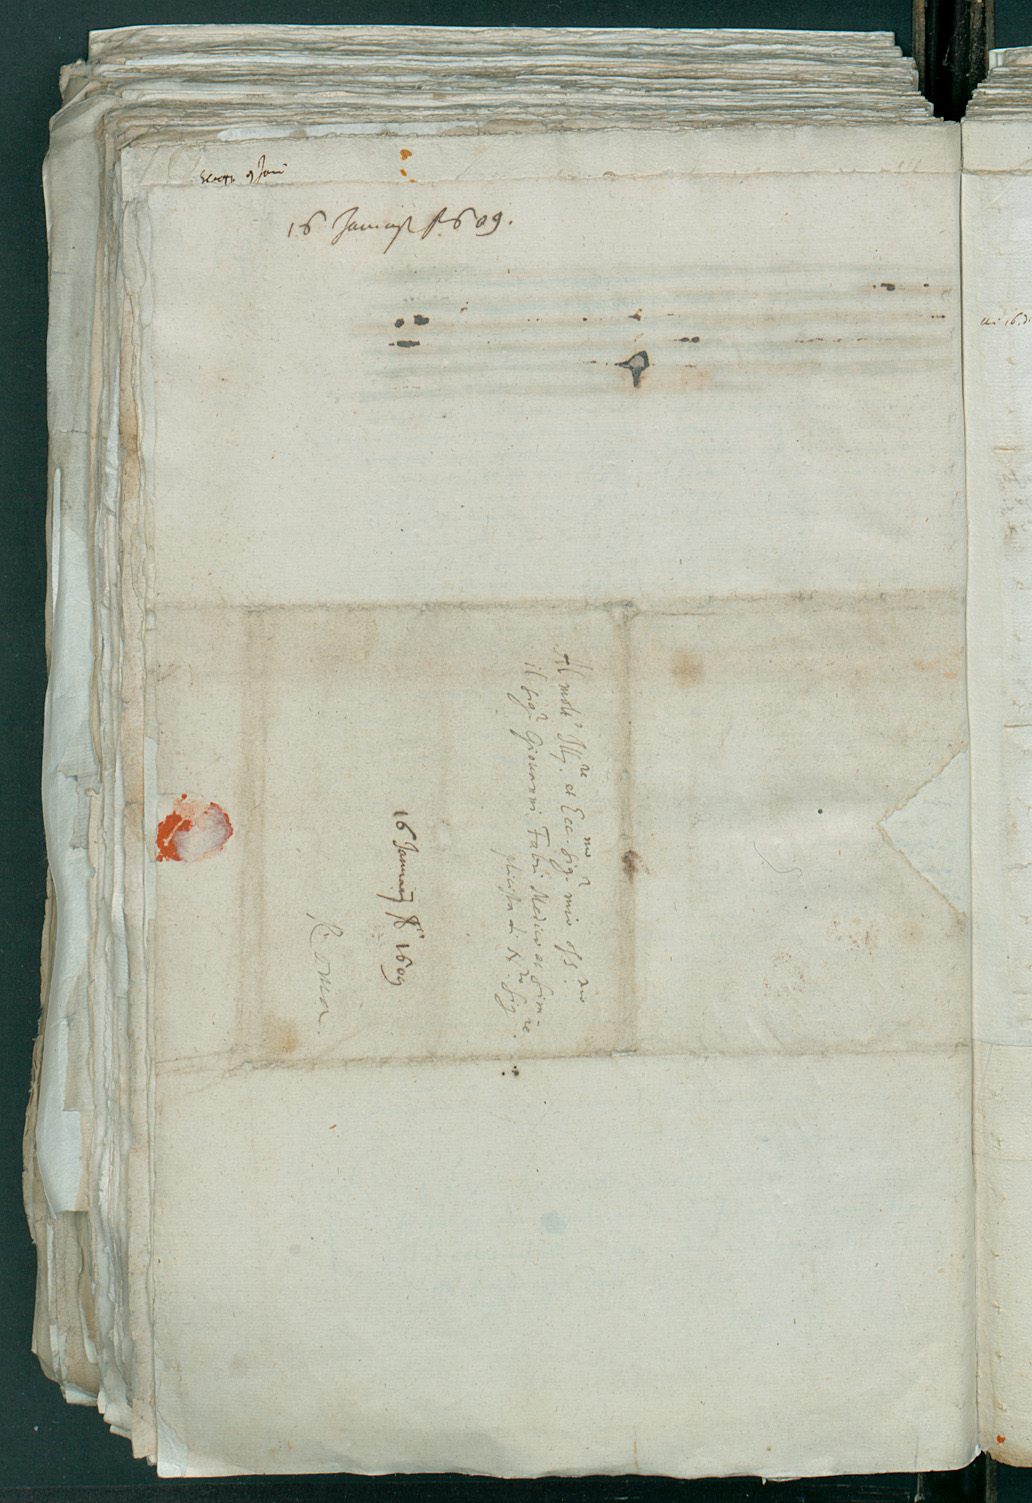 16 Januarij 1609.
Al molt' Ill.re et Ecc.mo sig.r mio oss.mo
il sig.r Giovanni Fabri Medico et sim=
plicista di N.ro Sig.re.
16 Januarij 1609
Roma.